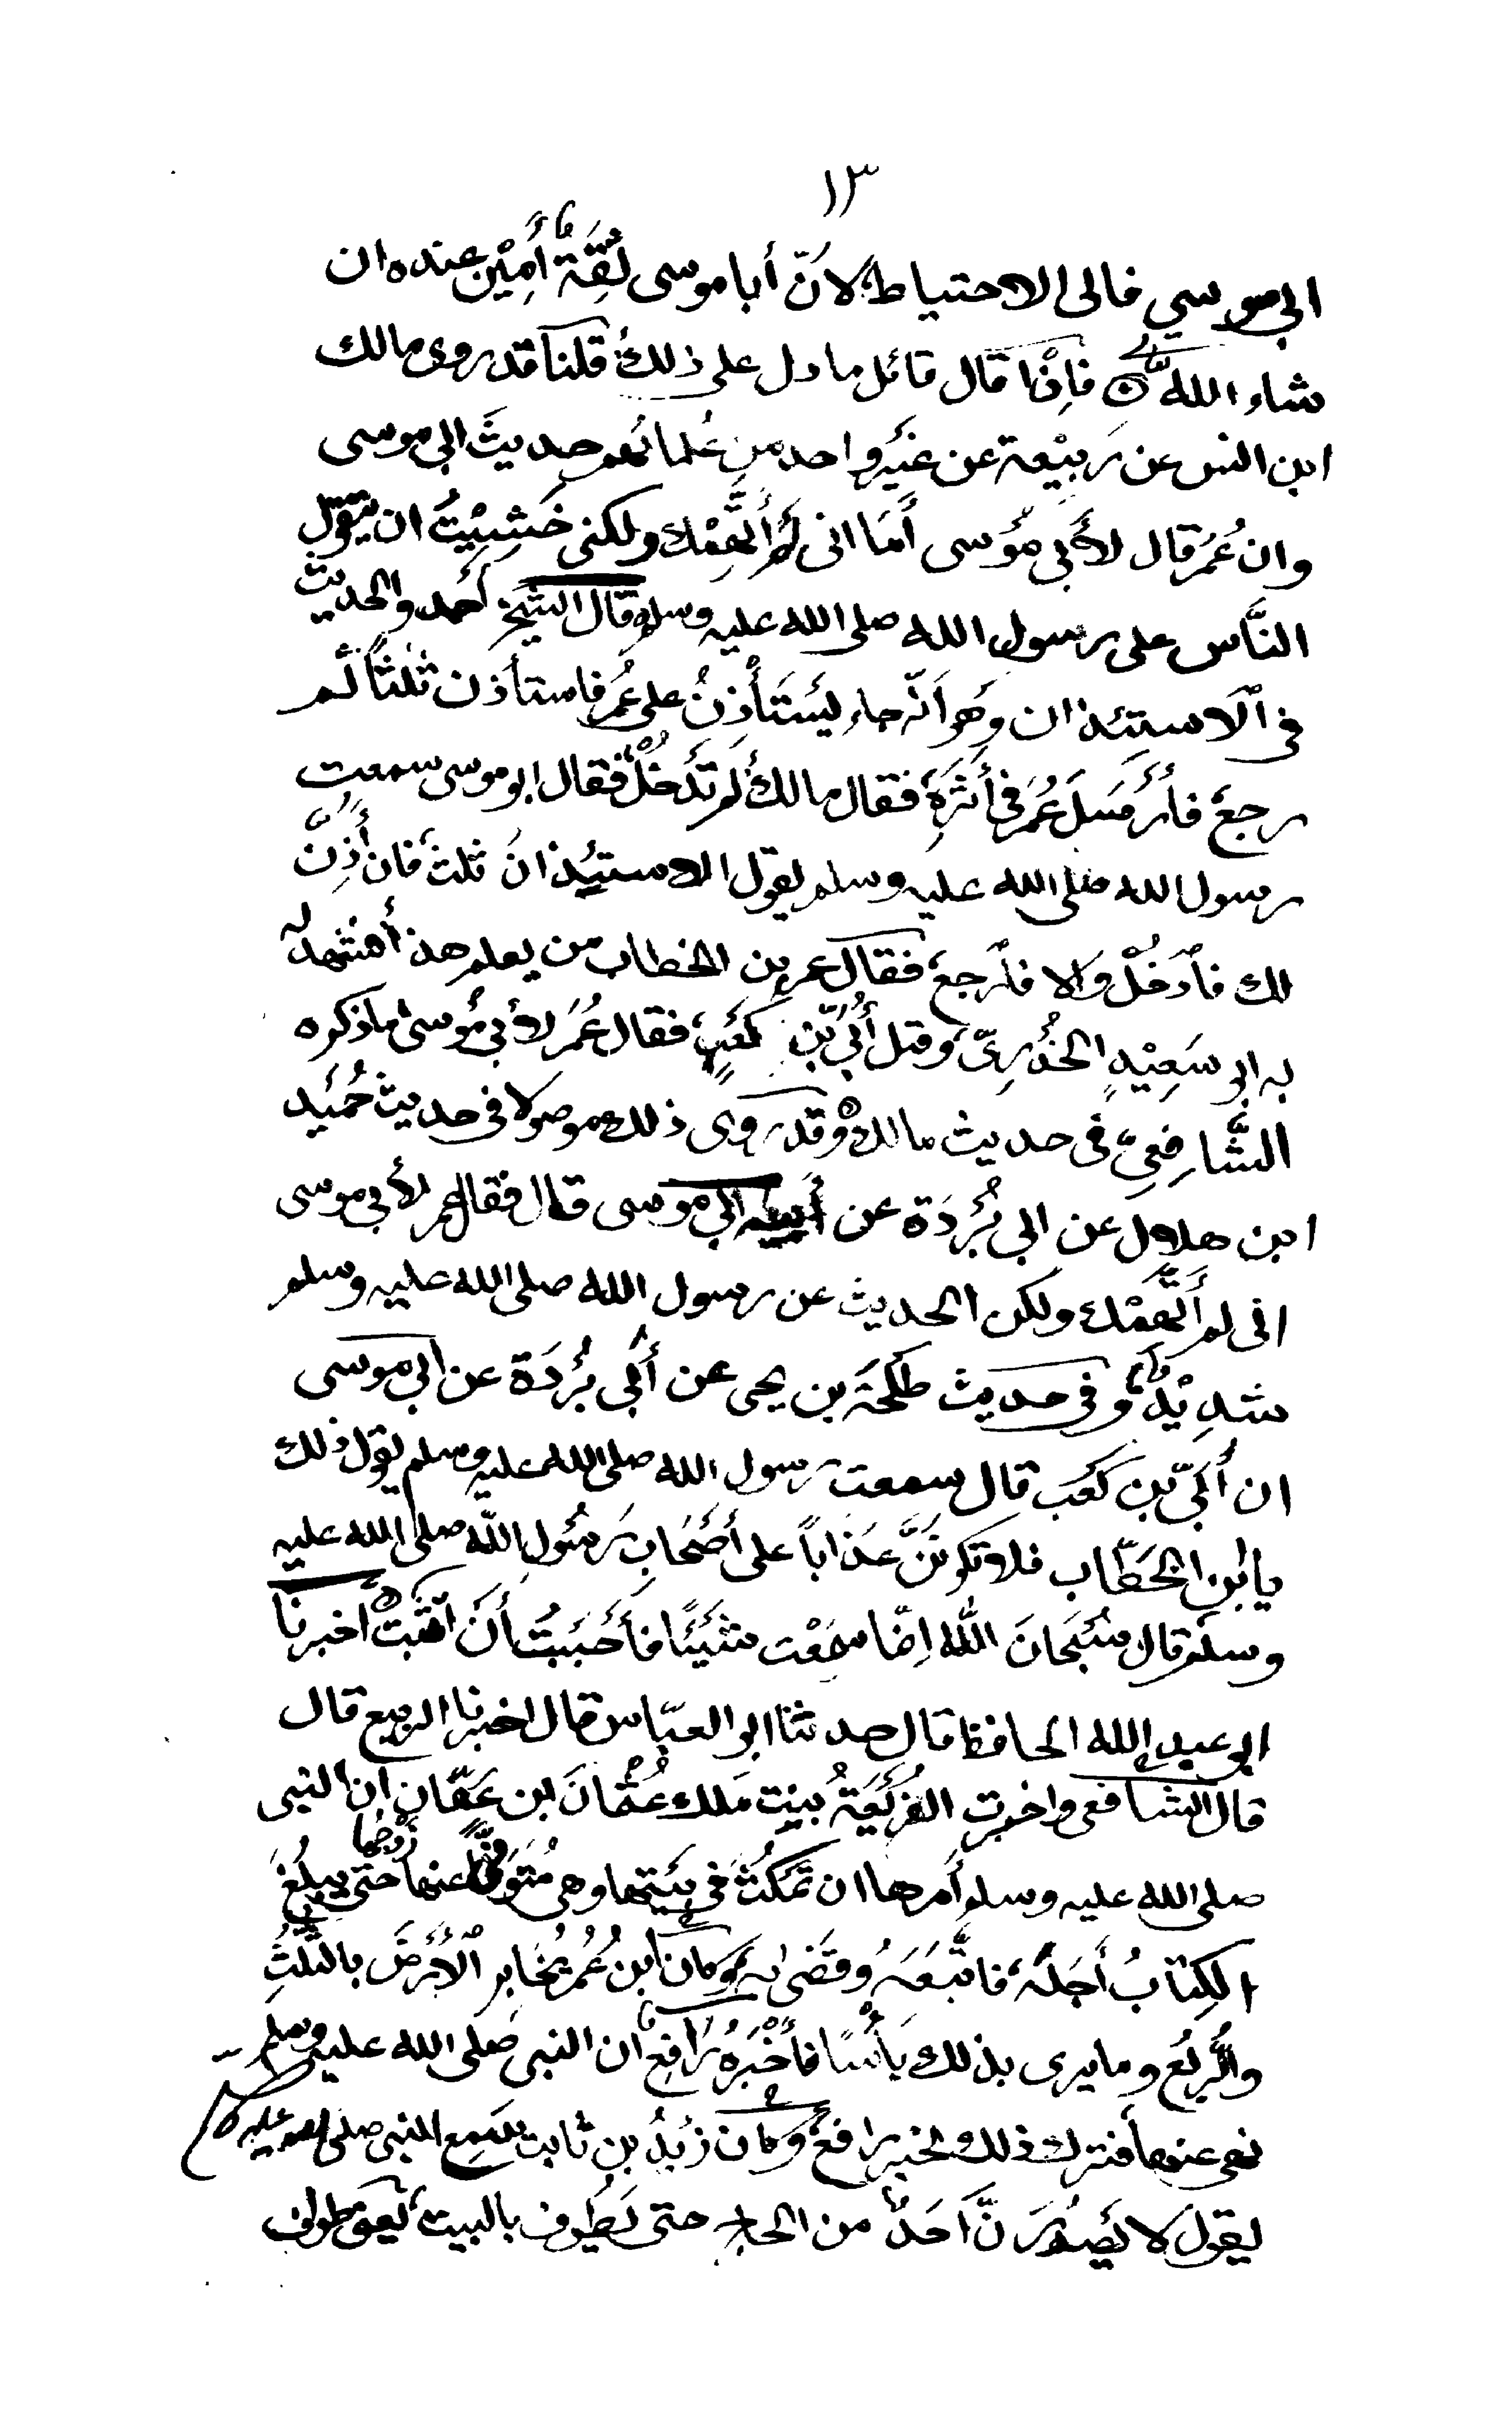 ١٣
ابي موسي فالى الاحتياط لأنّ أبا موسى ثِقَةٌ أَمِيْن عنده ان
شاء الله فإنْ قال قائل ما دل على ذلك قلنا قد روى مالك
ابن انس عن رَبيْعة عن غَيْر واحد من عُلمائهم حديثَ ابي موسى
وان عُمَر قال لأبي مُوسى أَمَا انى لَمْ أَتَّهِمْك ولكني خَشِيْتُ ان يتقوّل
النَّاس على رسول الله صلى الله عليه وسلم قال الشيخ أحمد والحديث
فى الاستئذان وهو أنّه جاء يَسْتَأْذِنُ على عُمَر فاستأذن ثلثاً ثم
رجعَ فأَرْسَلَ عُمَر في أَثَرِه فقال مالك لم تَدْخُلْ فقال ابو موسى سمعت
رسول الله صلى الله عليه وسلم يقول الاستيذان ثلث فان أُذِنَ
لك فادْخُلْ والا فارجع فقال عمر بن الخطاب من يعلم هذا فشهد له
به ابو سَعِيْدٍ الخُدْرِىّ وقيل أُبَيّ بْن كَعْبٍ فقال عُمَر لأبي مُوسى ما ذكره
الشَّافِعِيّ فى حديث مالك وقد روى ذلك موصولا فى حديث حُمَيْد
ابن هلال عن ابي بُرْدَة عن أبيه ابي موسى قال فقال عمر لأبي موسى
انى لم أَتَّهِمْك ولكن الحديث عن رسول الله صلى الله عليه وسلم
شدِيْدٌ وفى حديث طلحَة بن يحيى عن أبي بُرْدَة عن ابي موسى
ان أُبَيّ بن كَعْب قال سمعت رسول الله صلى الله عليه وسلم يقول ذلك
يا ابن الخَطّاب فلا تكونَنَّ عَذاباً على أَصْحَابِ رَسُولِ اللّٰه صلى الله عليه
وسلم قال سُبْحَانَ اللّٰه اِنّما سَمِعْت شَيْئًا فأَحْبَبْتُ أنْ أتثبتَ أخبرنا
ابو عبد الله الحافظ قال حدثنا ابو العبّاس قال اخبرنا الربيع قال
قال الشافعى واخبرت الفُرَيْعَةُ بِنْت مَلك عُثْمانَ ابن عَفّان ان النبى
صلى الله عليه وسلم أَمرها ان تَمْكُثَ فى بَيْتها وهى مُتَوَفًّى عنها زوجُها حتى يبلُغَ
الكِتابُ أَجَلَهُ فاتَّبَعَهُ وقَضى به وكان ابن عُمَر يُخَابِر الأَرْضَ بالثُلُثِ
والرُّبُع وما يرى بذلك بَأْسًا فأَخْبَرَهُ رَافِعٌ ان النبى صَلى الله عليه وسلم
نهى عنها فترك ذلك لخبر رافع وكان زَيْدُ بن ثابت سمع النبى صلى الله عليه
يقول لا يَصْدُرَنَّ أَحَدٌ من الحاج حتى يَطُوف بالبيت يعنى طواف